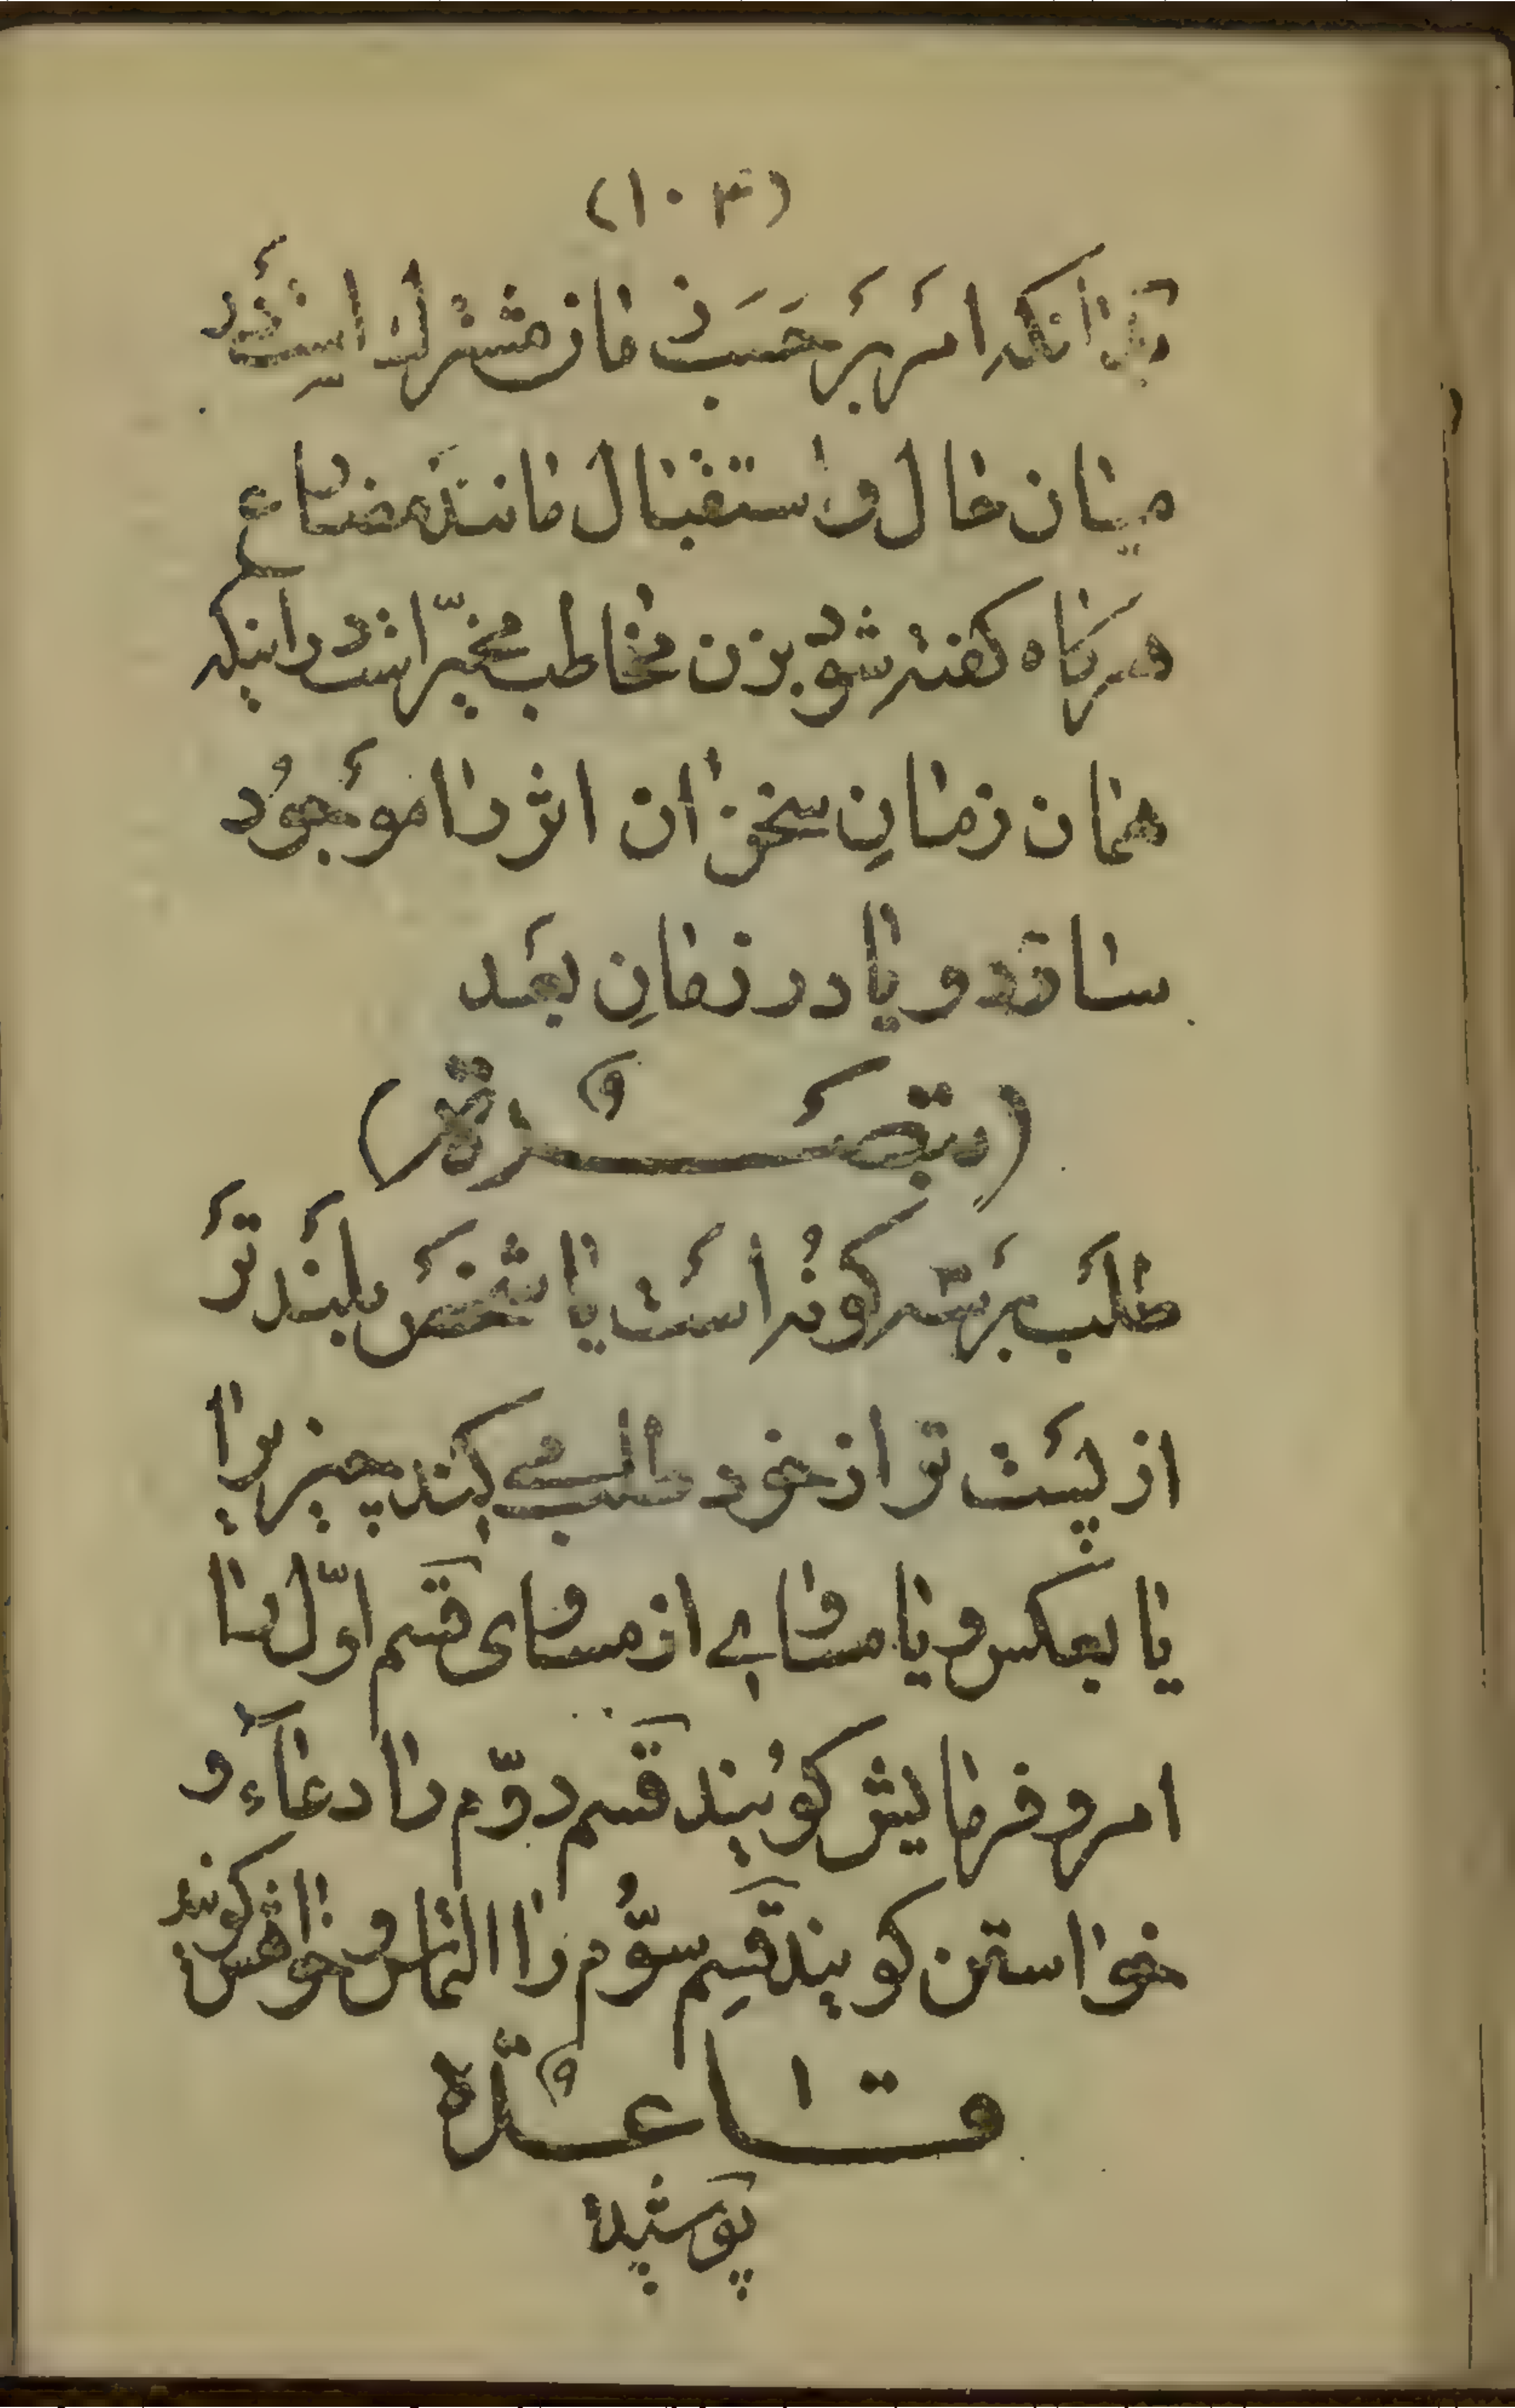 (۱۰۳)
بدانکه امر بر حسب زمان مشترک است در
میان حال و استقبال مانند مضارع
هرگاه گفته شود بزن مخاطب مخیّر است در اینکه
همان زمانِ سخن آن اثر را موجُود
سازد و یا در زمانِ بعد
(تبصرة)
طلب بر سه گونه است یا شخص بلندتر
از پست‌تر از خود طلب می کند چیزیرا
یا بعکس و یا مساوی از مساوی قسم اوّل را
امر و فرمایش گویند قسم دوّم را دعآء و
خواستن گویند قسم سوُّم را التماس و خواهش گویند
قاعدة
پوشیده